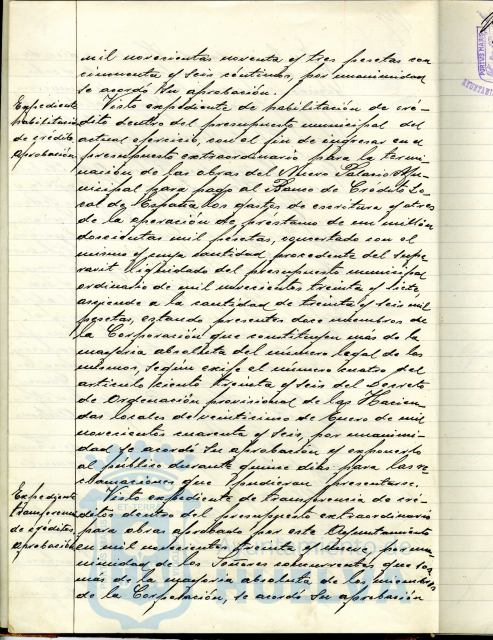 mil novecientas noventa y tres pesetas con
cincuenta y seis céntimos, por unanimidad
se acordó su aprobación.
Expediente
habilitación
de crédito,
aprobación
Visto expediente de habilitación de cré-
dito dentro del presupuesto municipal del
actual ejercicio, con el fin de ingresar en el
presupuesto extraordinario para la termi-
nación de las obras del Nuevo Palacio Mu-
nicipal para pago al Banco de Crédito Lo-
cal de España los gastos de escritura y otros
de la operación de préstamo de un millón
doscientas mil pesetas, concertado con el
mismo y cuya cantidad, procedente del supe-
ravit liquidado del presupuesto municipal
ordinario de mil novecientos treinta y siete
asciende a la cantidad de treinta y seis mil
pesetas, estando presentes doce miembros de
la Corporación que constituyen más de la
mayoria absoluta del número legal de los
mismos, según exije el número cuatro del
artículo ciento treinta y seis del Decreto
de Ordenación provisional de las Hacien-
das locales de veinticinco de Enero de mil
novecientos cuarenta y seis, por unanimi-
dad se acordó su aprobación y exponerlo
al público durante quince días para las re-
clamaciones que pudieran presentarse.
Expediente
transferencia
de créditos,
aprobación
Visto expediente de transferencia de cré-
ditos dentro del presupuesto extraordinario
para obras aprobado por este Ayuntamiento
en mil novecientos treinta y nueve, por una-
nimidad de los Señores concurrentes que son
más de la mayoria absoluta de los miembros
de la Corporación, se acordó su aprobación
Ayuntamiento de